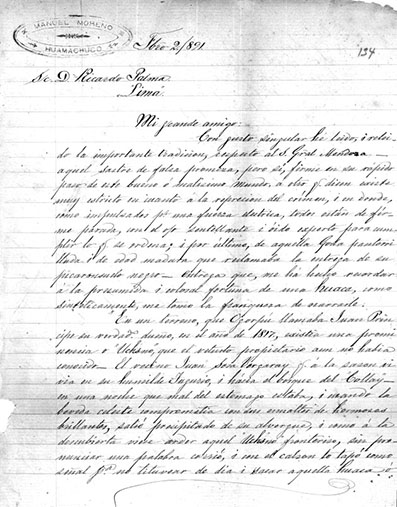 MANUEL MORENO
HUAMACHUCO
Fbro 2/891
134
Sr. D. Ricardo Palma
Lima
Mi grande amigo:
Con gusto singular he leido, i relei-
do la importante tradicion, respecto al S. Gral Mendoza –
aquel sastre de falsa promesa, pero sí, firme en su rápido
paso de este bueno ó malísimo mundo, á otro q. dicen existe
muy estricto en cuanto á la represion del crímen, i en donde,
como impulsados pr. una fuerza eléctrica, todos están de fir-
me parada, con el ojo centellante i oído experto para cum-
plir lo q. se ordena; i por último, de aquella Goda pantorri-
llada i de edad madura que reclamaba la entrega de su
picaronsado negro – entrega que, me ha hecho recordar
á la presumida i colosal fortuna de una huaca, como
sintéticamente, me tomo la franqueza de narrarle.
En un terreno, que Ogorpu llamaba Juan Prin-
cipe su verdadº. dueño, en el año de 1817, existia una promi-
nencia o Uchano, que el vetusto propietario aun no habia
conocido. El vecino Juan José Vergaray q. á la sason vi-
via en su humilde tugurio, i hácia el bosque del Collay –
en una noche que mal del estomago estaba, i cuando la
boveda celeste comprometia con sus esmaltes de hermosos
brillantes, salió precipitado de su albergue, i como á la
descubierta viese arder aquel Uchano fronterizo, sin pro-
nunciar una palabra corrió, i con el calzon lo tapó como
señal pª. no titubear de dia i sacar aquella huaca ó